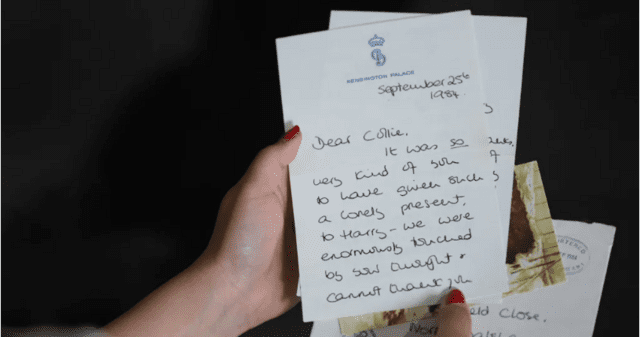 KENSINGTON PALACE
September 25th
1984.
Dear Collie,
It was so
very kind of you
to have given such
a lovely present,
to Harry - we were
enormously touched
by your thought &
cannot thank you
Close,